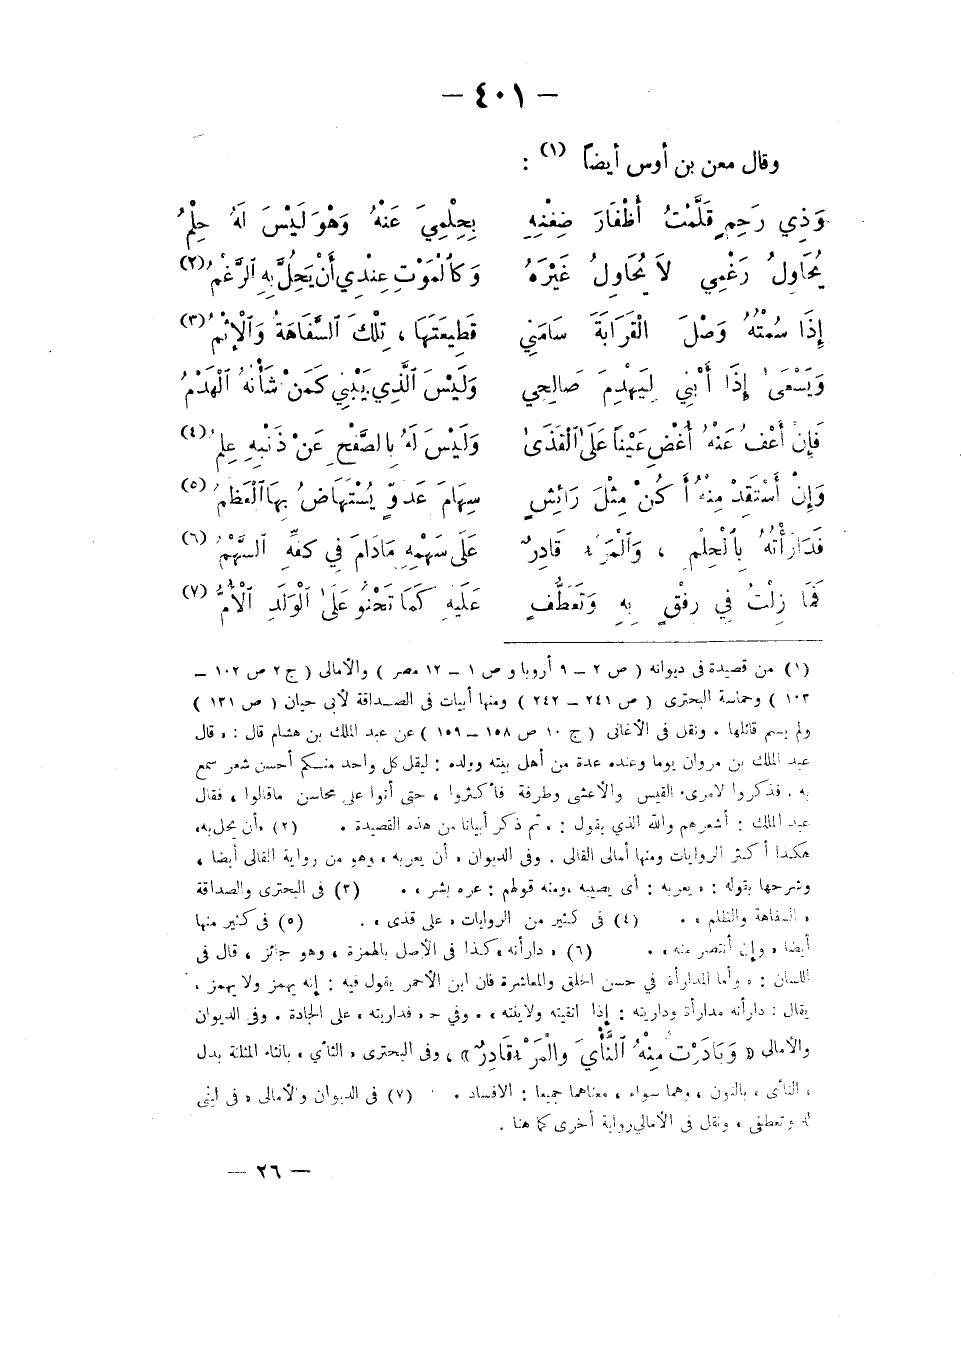 — ٤٠١ —
وقال معن بن أوس أيضاً (١) :
وَذِي رَحِمٍ قَلَّمْتُ أَظْفَارَ ضِغْنِهِ بِحِلْمِيَ عَنْهُ وَهْوَ لَيْسَ لَهُ حِلْمُ
يُحَاوِلُ رَغْمِي لاَ يُحَاوِلُ غَيْرَهُ وَكَالْمَوْتِ عِنْدِي أَنْ يَحُلَّ بِهِ الرَّغْمُ (٢)
إِذَا سُمْتُهُ وَصْلَ الْقَرَابَةِ سَامَنِي قَطِيعَتَهَا ، تِلْكَ السَّفَاهَةُ وَالْإِثْمُ (٣)
وَيَسْعَى إِذَا أَبْنِي لِيَهْدِمَ صَالِحِي وَلَيْسَ الَّذِي يَبْنِي كَمَنْ شَأْنُهُ الْهَدْمُ
فَإِنْ أَعْفُ عَنْهُ أُغْضِ عَيْناً عَلَى الْقَذَى وَلَيْسَ لَهُ بِالصَّفْحِ عَنْ ذَنْبِهِ عِلْمُ (٤)
وَإِنْ أَسْتَقِدْ مِنْهُ أَكُنْ مِثْلَ رَائِشٍ سِهَامَ عَدُوٍّ يُسْتَهَاضُ بِهَا الْعَظْمُ (٥)
فَدَارَأْتُهُ بِالْحِلْمِ ، وَالْمَرْءُ قَادِرٌ عَلَى سَهْمِهِ مَادَامَ فِي كَفِّهِ السَّهْمُ (٦)
فَمَا زِلْتُ فِي رِفْقٍ بِهِ وَتَعَطُّفٍ عَلَيْهِ كَمَا تَحْنُو عَلَى الْوَلَدِ الْأُمُّ (٧)
(١) من قصيدة فى ديوانه ( ص ٢ – ٩ أروبا و ص ١ – ١٢ مصر ) والأمالى ( ج ٢ ص ١٠٢ –
١٠٣ ) وحماسة البحترى ( ص ٢٤١ – ٢٤٢ ) ومنها أبيات فى الصداقة لأبى حيان ( ص ١٣١ )
ولم يسم قائلها . ونقل فى الأغانى ( ج ١٠ ص ١٥٨ – ١٥٩ ) عن عبد الملك بن هشام قال : « قال
عبد الملك بن مروان يوما وعنده عدة من أهل بيته وولده : ليقل كل واحد منكم أحسن شعر سمع
به . فذكروا لامرىء القيس والأعشى وطرفة فأكثروا ، حتى أتوا على محاسن ماقالوا ، فقال
عبد الملك : أشعرهم والله الذي يقول : » ثم ذكر أبياتا من هذه القصيدة . (٢) «أن يحل به»
هكذا أكثر الروايات ومنها أمالى القالى . وفى الديوان « أن يعربه » وهو من رواية القالى أيضا ،
وشرحها بقوله : « يعربه : أى يصيبه ، ومنه قولهم : عره بشر » . (٣) فى البحترى والصداقة
« السفاهة والظلم » . (٤) فى كثير من الروايات « على قذى » . (٥) فى كثير منها
أيضا « وإن أنتصر منه » . (٦) « دارأته » كذا فى الأصل بالهمزة ، وهو جائز ، قال فى
اللسان : « وأما المدارأة في حسن الخلق والمعاشرة فان ابن الأحمر يقول فيه : إنه يهمز ولا يهمز ،
يقال : دارأته مدارأة وداريته : إذا اتقيته ولاينته » . وفي ح « فداريته » على الجادة . وفى الديوان
والأمالى « وَبَادَرْتُ مِنْهُ النَّأْيَ وَالْمَرْءُ قَادِرٌ » ، وفى البحترى « الثأي » بالثاء المثلثة بدل
« النأى » بالنون ، وهما سواء ، معناهما جميعا : الافساد . (٧) فى الديوان والأمالى « فى لينى
له وتعطفى » ونقل فى الأمالي رواية أخرى كما هنا .
— ٢٦ —